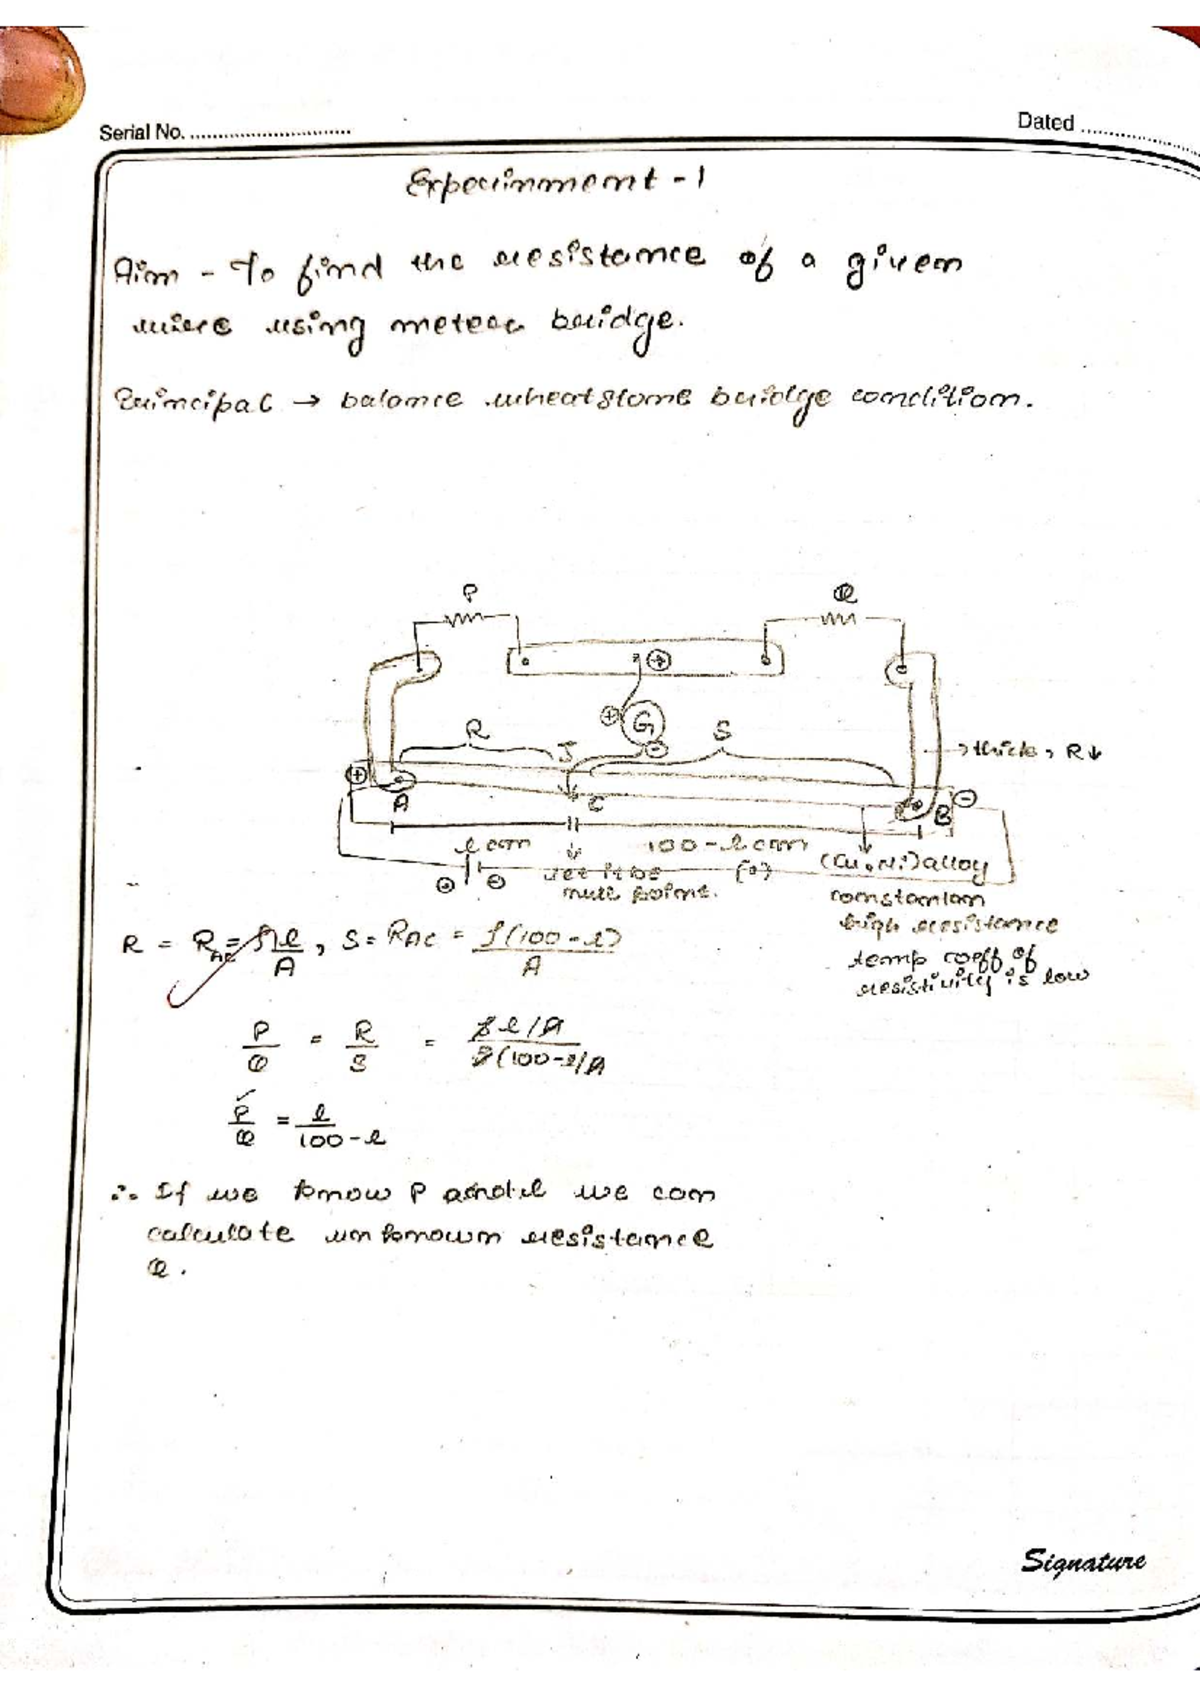 Serial No. ............................
Dated ......................
Experinment - 1
Aim - To find the resistance of a given
wire using meter bridge.
Principal → balance wheatstone bridge condition.
P
Q
⊕
⊕ G ⊖
R
J
S
→ thick, R↓
⊕
A
C
B
⊖
l cm
100 - l cm
(Cu, Ni) alloy
let it be
null point.
(•)
⊕ ⊖
constantan
high resistance
temp coeff of
resistivity is low
R = R_AC = ρl/A , S = R_AC = ρ(100-l)/A
P/Q = R/S = ρl/A / ρ(100-l/A
P/Q = l/100-l
∴ If we know P and l we can
calculate unknown resistance
Q.
Signature